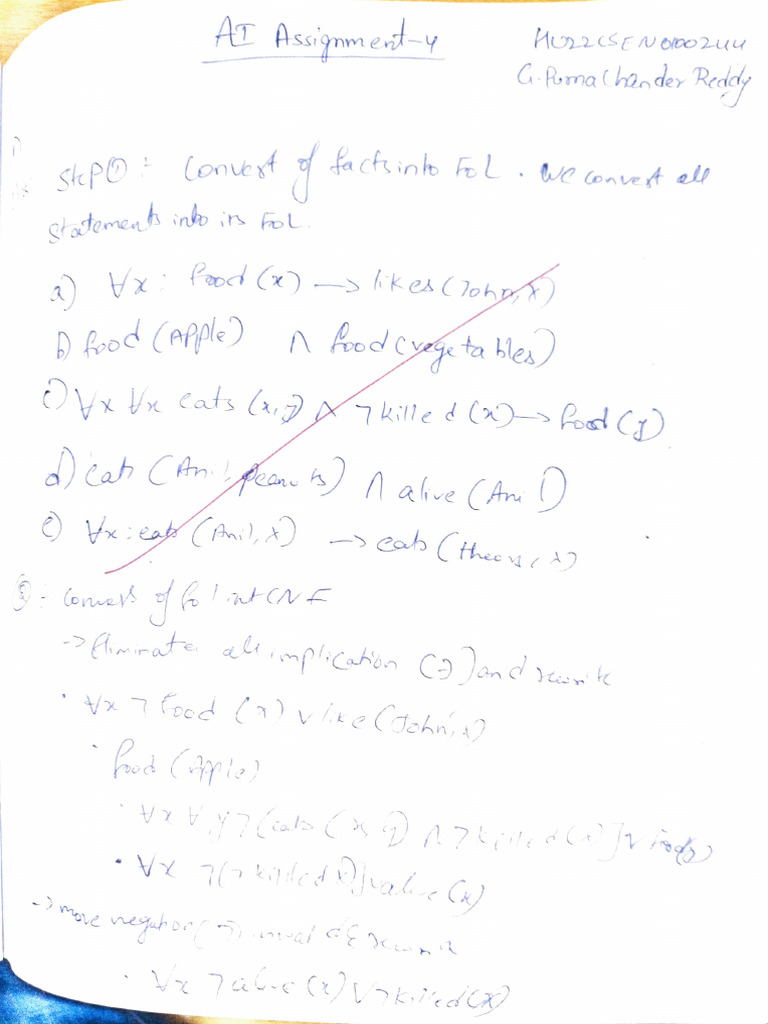 AI Assignment-4
HU22CSEN0100244
G. Purna Chander Reddy
1)
Step ① :- Convert of facts into FOL. We convert all
Statements into its FOL.
a) ∀x : food (x) → likes (John, x)
b) food (Apple) ∧ food (vegetables)
c) ∀x ∀x eats (x, y) ∧ ¬killed (x) → food (y)
d) eats (Anil, peanuts) ∧ alive (Anil)
e) ∀x : eats (Anil, x) → eats (
② :- convert of fol int CNF
→ Eliminate all implication (→) and rewrite
• ∀x ¬ food (x) ∨ like (John, x)
• food (Apple)
• ∀x ∀y ¬ (eats (x, y) ∧ ¬ killed (x)] ∨ food(y)
• ∀x ¬(¬ killed x)] ∨ alive (x)
→ move negation (¬)
• ∀x ¬ alive (x) ∨ ¬ killed (x)